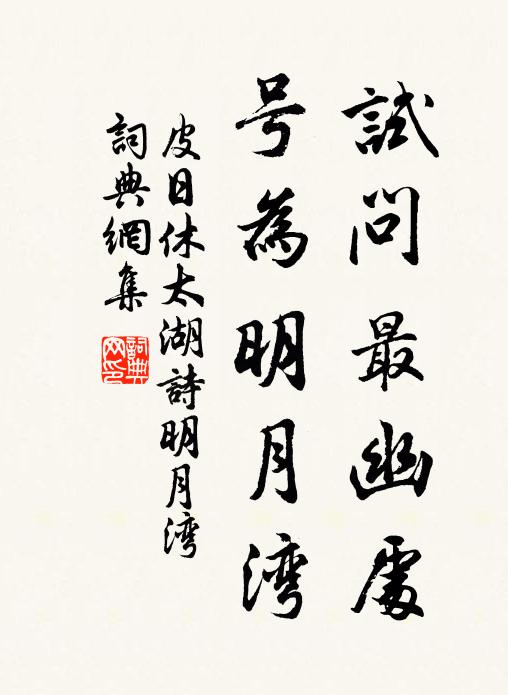 試問最幽處
号為明月湾
皮日休太湖詩明月湾
詞典網集
詞典网印